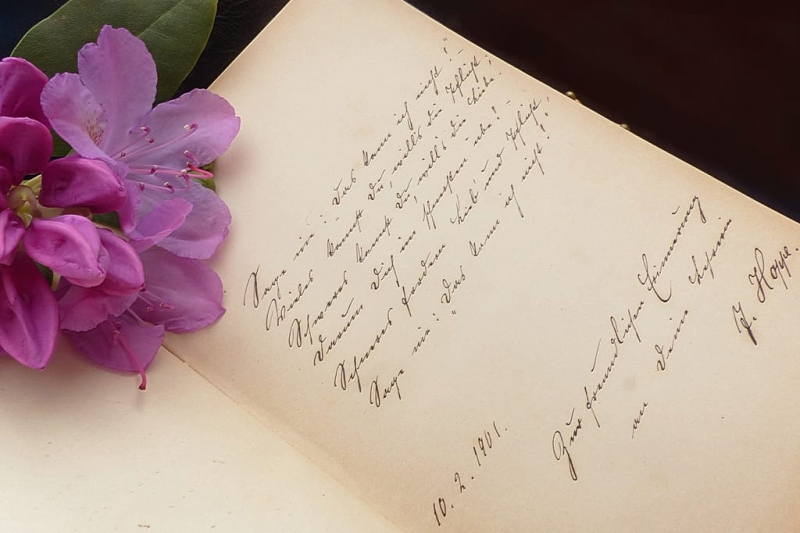 Sage nie: Das kann ich nicht!"
Vieles kannst Du, will's die Pflicht.
Schweres kannst Du, will's die Liebe.
Darum Dich im Schweren übe! –
Schweres fordern Lieb und Pflicht,
Sage nie: „Das kann ich nicht!"
10. 2. 1901.
Zur freundlichen Erinnerung
an Deine Lehrerin
J. Hoppe.